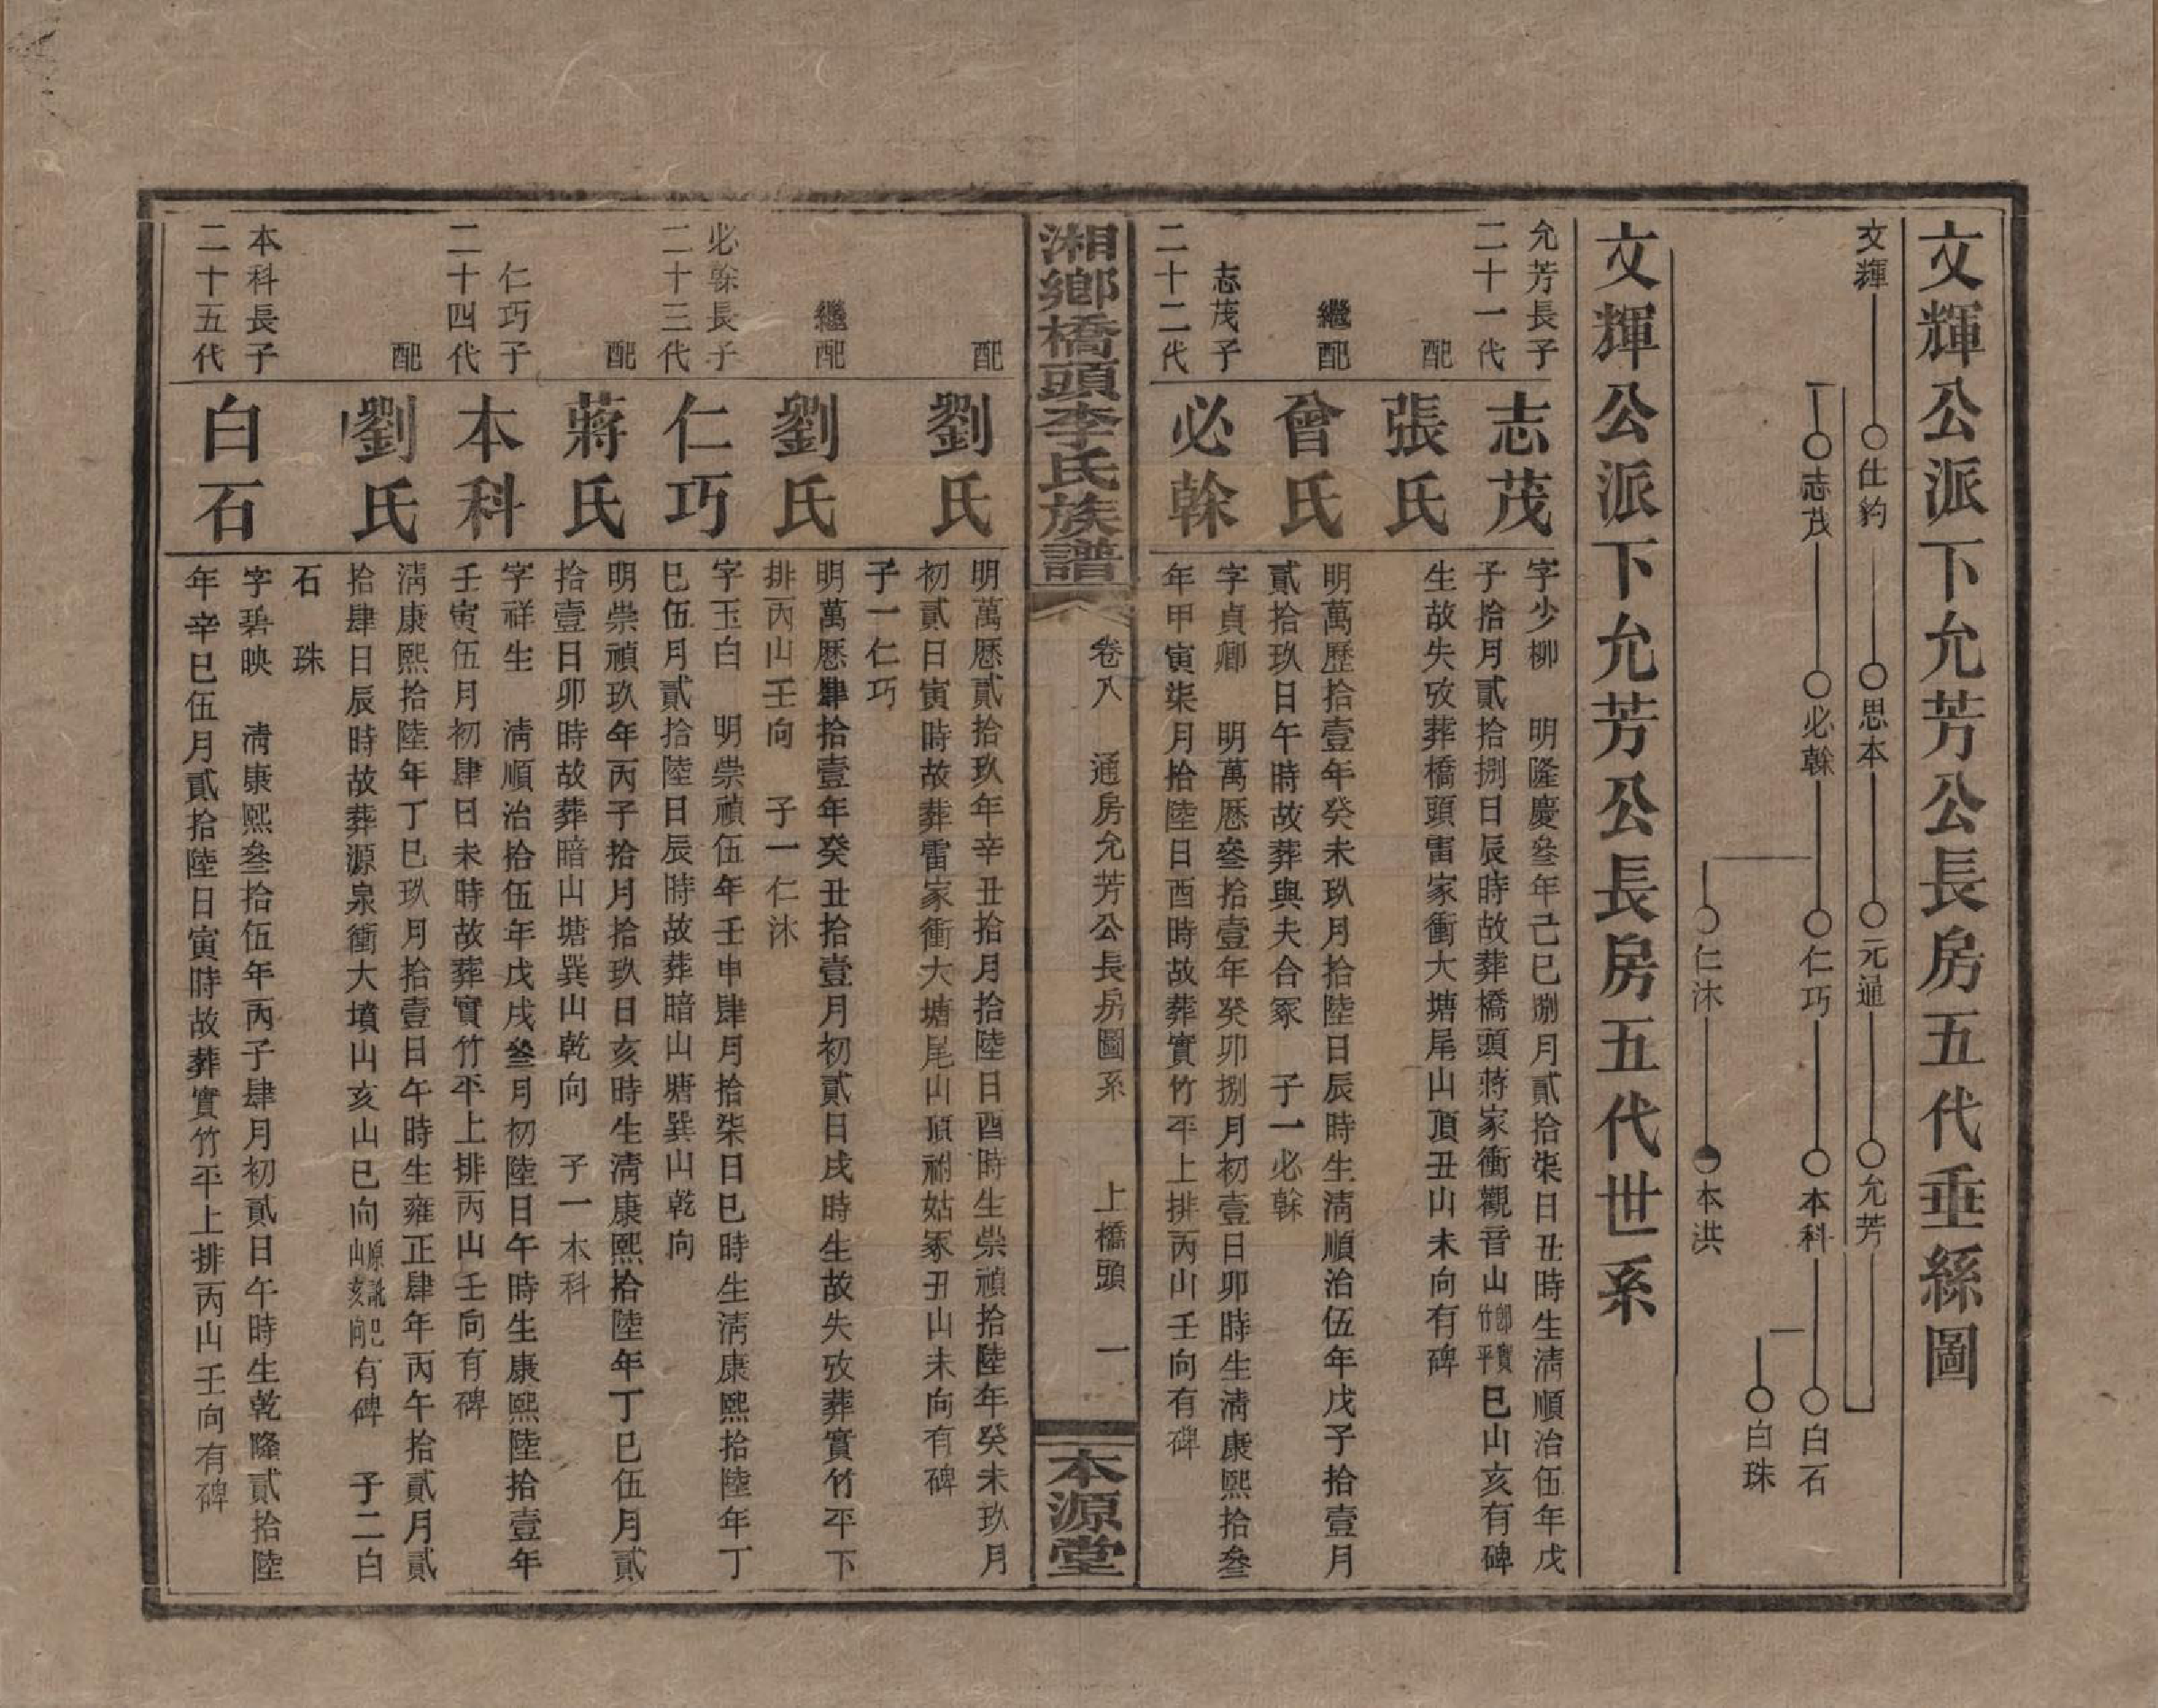 文輝公派下允芳公長房五代垂絲圖
文輝
仕鈞
思本
元通
允芳
志茂
必榦
仁巧
本科
白石
白珠
仁沐
本洪
文輝公派下允芳公長房五代世系
允芳長子
二十一代
志茂
字少柳 明隆慶叄年己巳捌月貳拾柒日丑時生淸順治伍年戊
子拾月貳拾捌日辰時故葬橋頭蔣家衝觀音山郎實竹平巳山亥有碑
配
張氏
生故失攷葬橋頭雷家衝大塘尾山頂丑山未向有碑
繼配
曾氏
明萬歷拾壹年癸未玖月拾陸日辰時生淸順治伍年戊子拾壹月
貳拾玖日午時故葬與夫合冢 子一必榦
志茂子
二十二代
必榦
字貞卿 明萬歷叄拾壹年癸卯捌月初壹日卯時生淸康熙拾叄
年甲寅柒月拾陸日酉時故葬實竹平上排丙山壬向有碑
湘鄉橋頭李氏族譜
卷八 通房允芳公長房圖系 上橋頭 一
本源堂
配
劉氏
明萬歷貳拾玖年辛丑拾月拾陸日酉時生崇禎拾陸年癸未玖月
初貳日寅時故葬雷家衝大塘尾山頂祔姑冢丑山未向有碑
子一仁巧
繼配
劉氏
明萬歷肆拾壹年癸丑拾壹月初貳日戌時生故失攷葬實竹平下
排丙山壬向 子一仁沐
必榦長子
二十三代
仁巧
字玉白 明崇禎伍年壬申肆月拾柒日巳時生淸康熙拾陸年丁
巳伍月貳拾陸日辰時故葬暗山塘巽山乾向
配
蔣氏
明崇禎玖年丙子拾月拾玖日亥時生淸康熙拾陸年丁巳伍月貳
拾壹日卯時故葬暗山塘巽山乾向 子一本科
仁巧子
二十四代
本科
字祥生 淸順治拾伍年戊戌叄月初陸日午時生康熙陸拾壹年
壬寅伍月初肆日未時故葬實竹平上排丙山壬向有碑
配
劉氏
淸康熙拾陸年丁巳玖月拾壹日午時生雍正肆年丙午拾貳月貳
拾肆日辰時故葬源泉衝大墳山亥山巳向原訛巳山亥向有碑 子二白
石 珠
本科長子
二十五代
白石
字碧映 淸康熙叄拾伍年丙子肆月初貳日午時生乾隆貳拾陸
年辛巳伍月貳拾陸日寅時故葬實竹平上排丙山壬向有碑